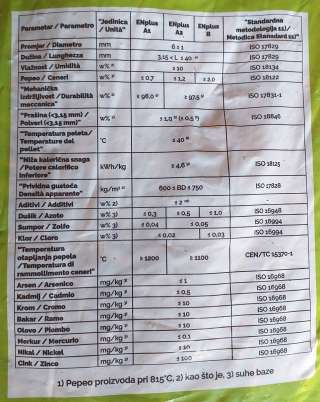 Parametar / Parametro "Jedinica / Unità" ENplus A1 ENplus A2 ENplus B "Standardna metodologija 11/ Metodica Standard 11)"
Promjer / Diametro mm 6 ± 1 ISO 17829
Dužina / Lunghezza mm 3,15 < L ≤ 40 ISO 17829
Vlažnost / Umidità w% ≤ 10 ISO 18134
Pepeo / Ceneri w% ≤ 0,7 ≤ 1,2 ≤ 2,0 ISO 18122
"Mehanička izdržljivost / Durabilità meccanica" w% ≥ 98,0 ≥ 97,5 ISO 17831-1
"Prašina (<3,15 mm) / Polveri (<3,15 mm)" w% ≤ 1,0 (≤ 0,5) ISO 18846
"Temperatura peleta/ Temperature del pellet" °C ≤ 40
"Niža kalorična snaga / Potere calorifico inferiore" kWh/kg ≥ 4,6 ISO 18125
"Prividna gustoća Densità apparente" kg/m³ 600 ≤ BD ≤ 750 ISO 17828
Aditivi / Additivi w% 2) ≤ 2
Dušik / Azoto w% 3) ≤ 0,3 ≤ 0,5 ≤ 1,0 ISO 16948
Sumpor / Zolfo w% 3) ≤ 0,04 ≤ 0,05 ISO 16994
Klor / Cloro w% 3) ≤ 0,02 ≤ 0,03 ISO 16994
"Temperatura otapljanja pepela /Temperatura di rammollimento ceneri" °C ≥ 1200 ≥ 1100 CEN/TC 15370-1
Arsen / Arsenico mg/kg ≤ 1 ISO 16968
Kadmij / Cadmio mg/kg ≤ 0,5 ISO 16968
Krom / Cromo mg/kg ≤ 10 ISO 16968
Bakar / Rame mg/kg ≤ 10 ISO 16968
Olovo / Piombo mg/kg ≤ 10 ISO 16968
Merkur / Mercurio mg/kg ≤ 0,1 ISO 16968
Nikal / Nickel mg/kg ≤ 10 ISO 16968
Cink / Zinco mg/kg ≤ 100 ISO 16968
1) Pepeo proizvoda pri 815°C, 2) kao što je, 3) suhe baze